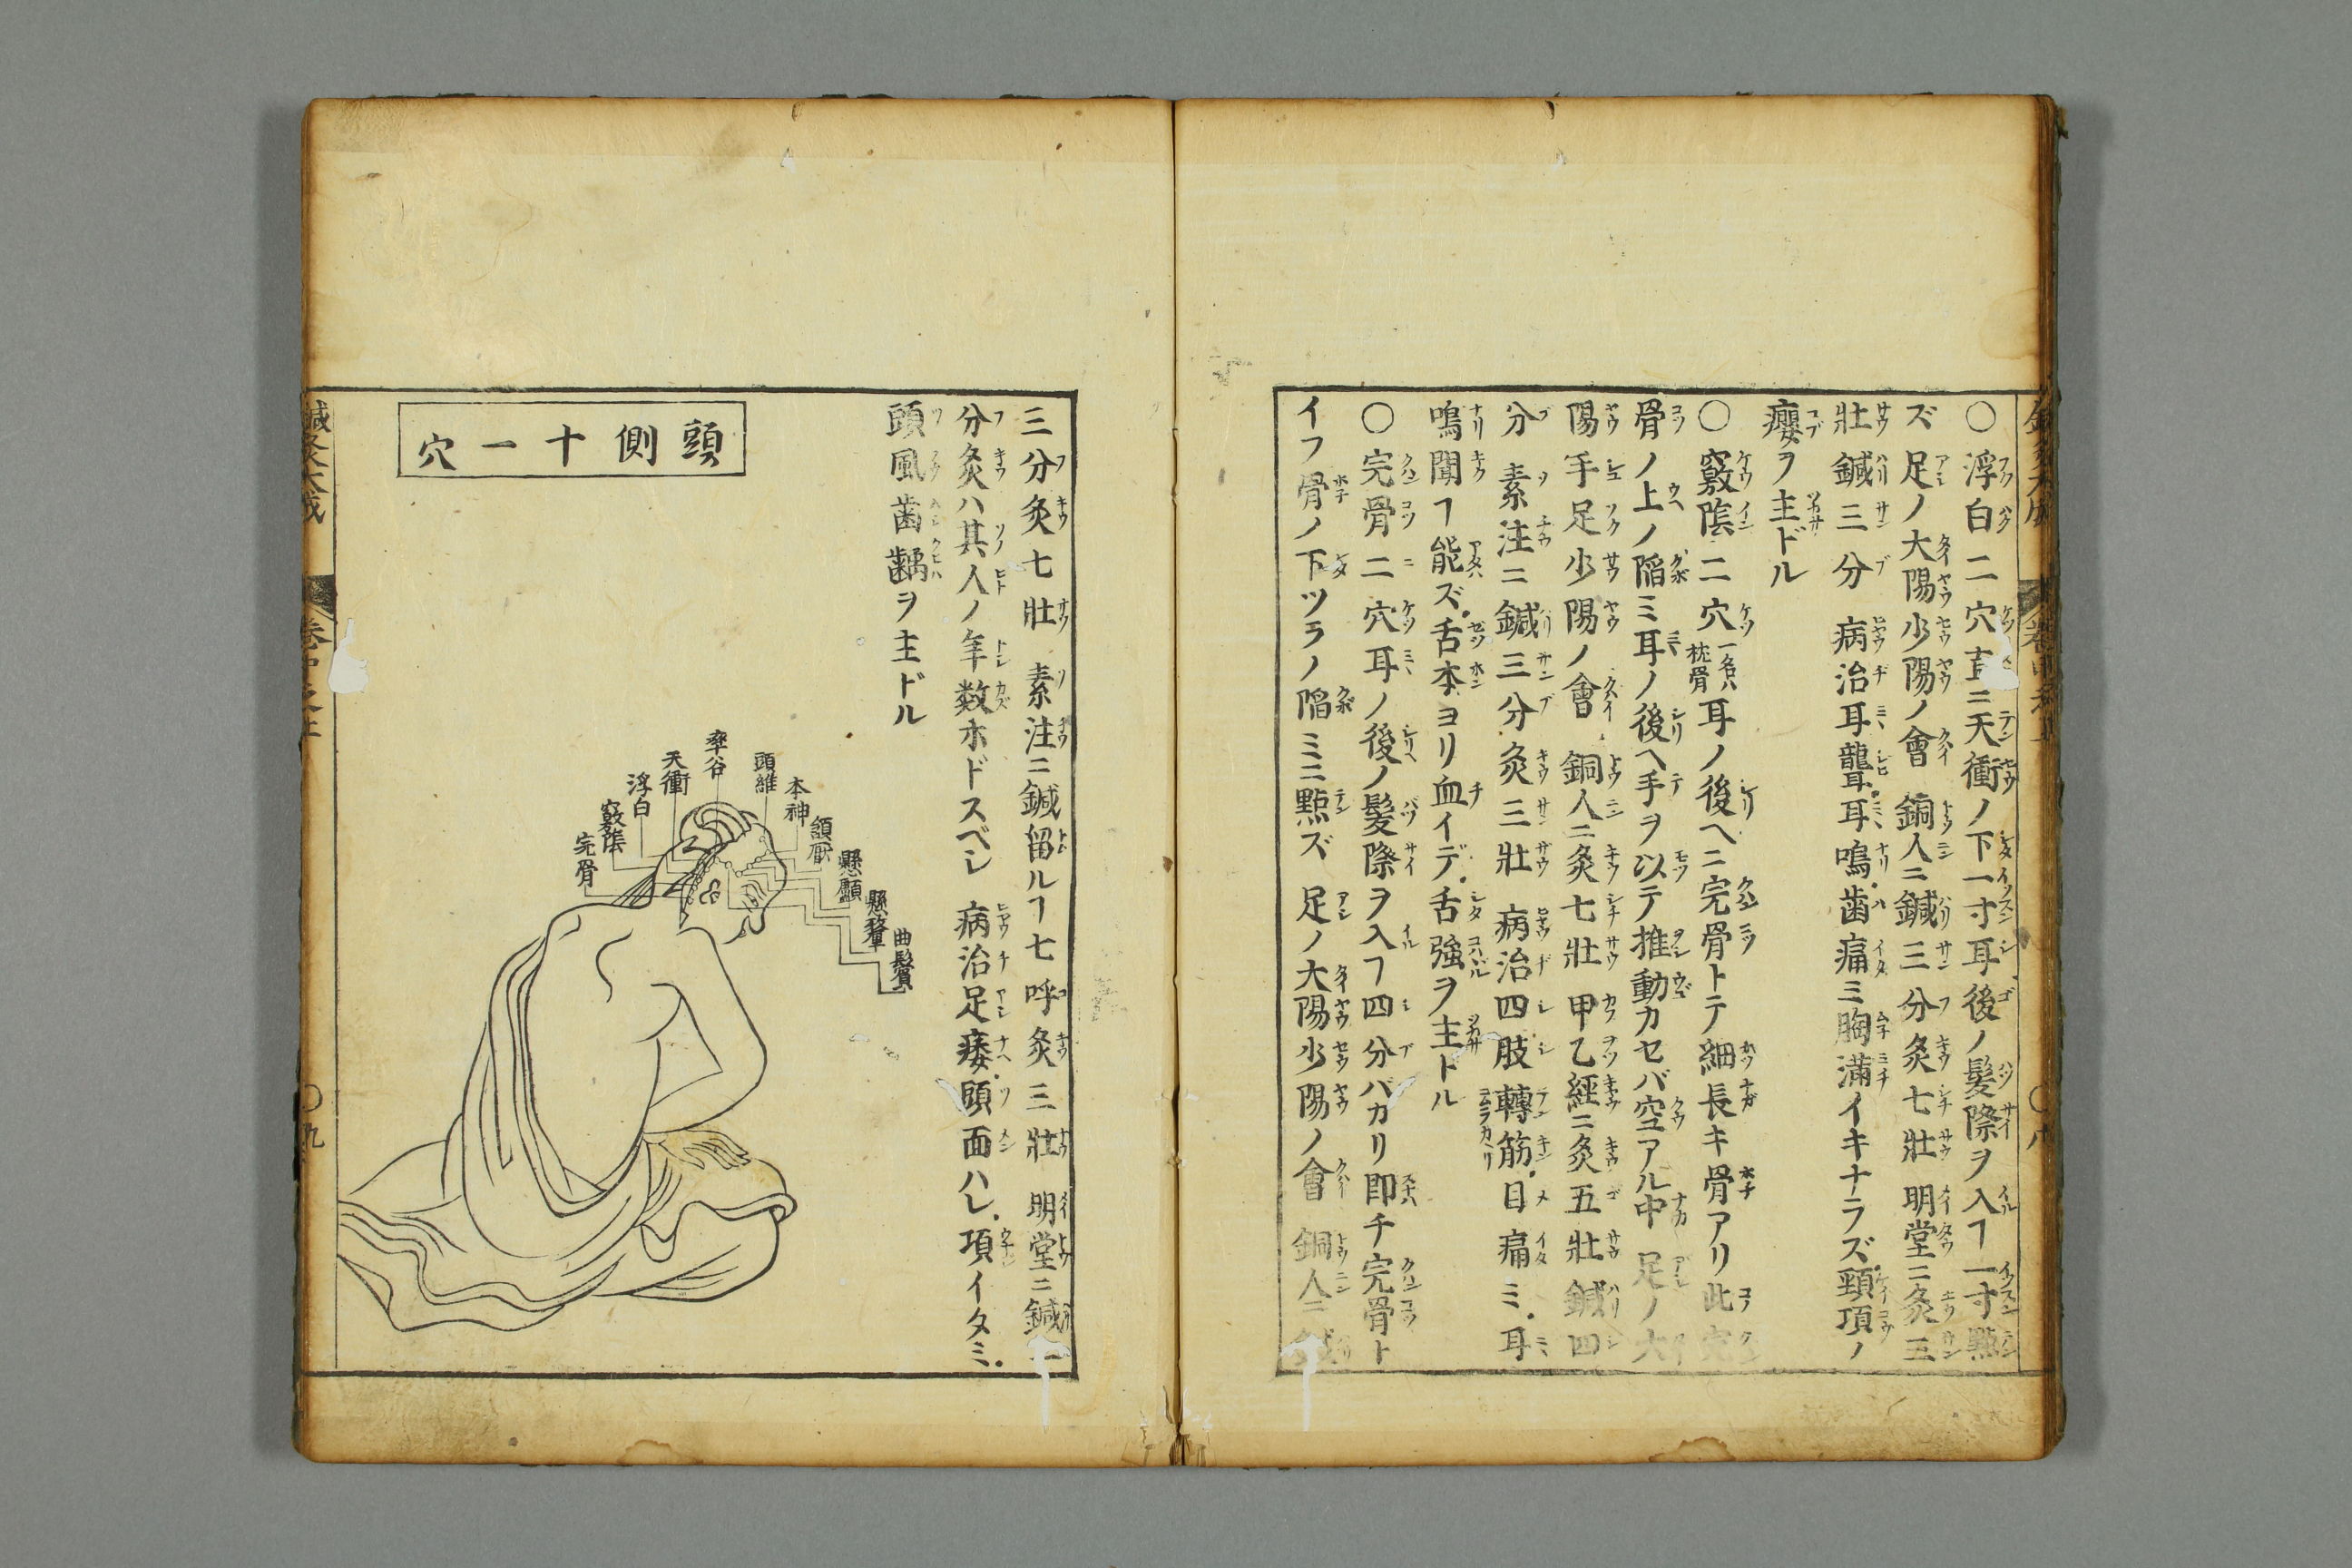 ○浮白二穴直ニ天衝ノ下一寸耳後ノ髪際ヲ入ヿ一寸點
ズ足ノ大陽少陽ノ會　銅人ニ鍼三分灸七壯　明堂ニ灸三
壯鍼三分　病治耳聾.耳鳴.歯痛ミ胸滿イキナラズ.頸項ノ
癭ヲ主ドル
○竅陰二穴一名ハ枕骨耳ノ後ヘニ完骨トテ細長キ骨アリ此完
骨ノ上ノ陥ミ耳ノ後ヘ手ヲ以テ推動カセバ空アル中　足ノ大
陽手足少陽ノ會　銅人ニ灸七壯　甲乙經ニ灸五壯鍼四
分　素注ニ鍼三分灸三壯　病治四肢轉筋.目痛ミ.耳
鳴聞ヿ能ズ.舌本ヨリ血イデ.舌強ヲ主ドル
○完骨二穴耳ノ後ノ髪際ヲ入ヿ四分バカリ即チ完骨ト
イフ骨ノ下ツラノ陥ミニ點ズ　足ノ大陽少陽ノ會　銅人ニ鍼
三分灸七壯　素注ニ鍼留ルヿ七呼灸三壯　明堂ニ鍼二
分灸ハ其人ノ年数ホドスベシ　病治足痿.頭面ハレ.項イタミ.
頭風歯齲ヲ主ドル
頭側十一穴
曲鬢
懸釐
懸顱
頷厭
本神
頭維
率谷
天衝
浮白
竅陰
完骨
鍼灸大成　巻中之上　○九